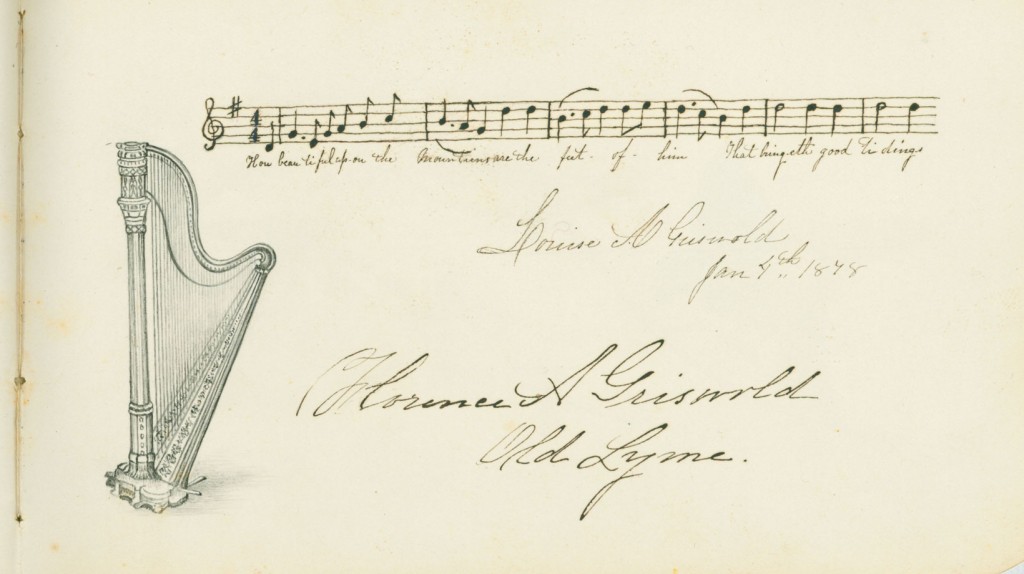 4
4
How beau ti ful up-on the Mountains are the feet - of - him That bring-eth good Ti dings
Louise A Griswold
Jan 4th 1878
Florence A Griswold
Old Lyme.